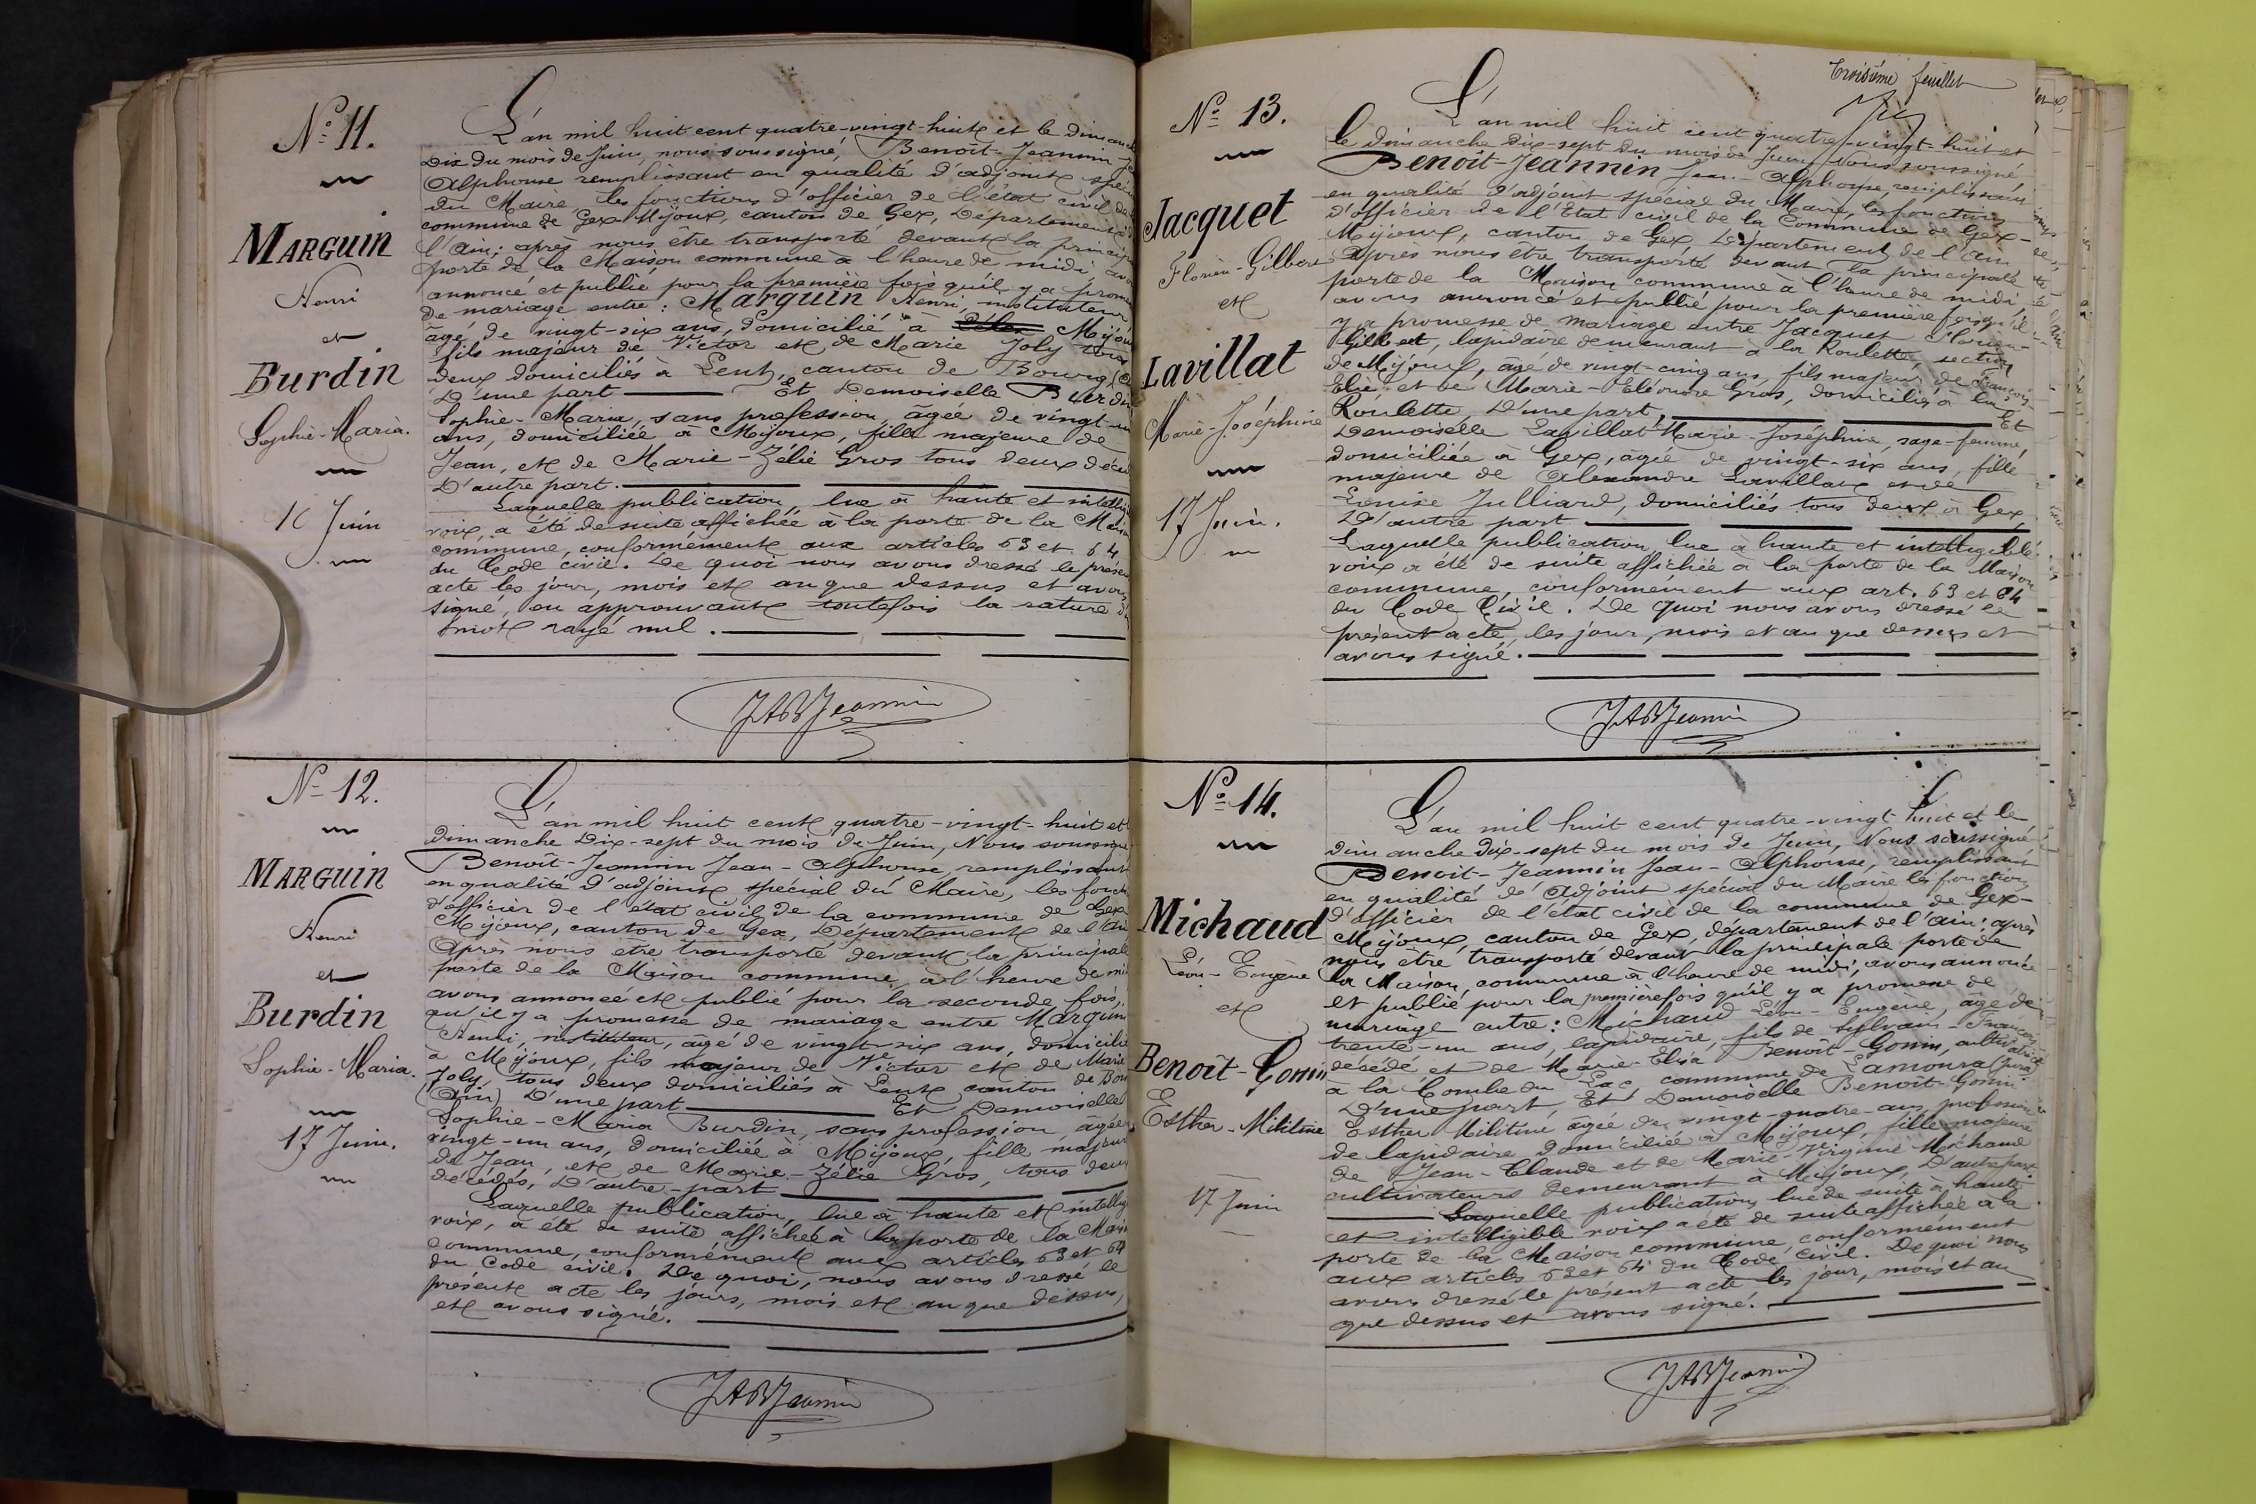 N° 11.
MARGUIN
Henri
et
Burdin
Sophie-Maria.
10 Juin
L'an mil huit cent quatre-vingt-huit et le dimanche
Dix du mois de Juin, nous soussigné, Benoît-Jeannin
Alphonse remplissant en qualité d'adjoint spécial
du Maire, les fonctions d'officier de l'état civil de
commune de Gex-Mijoux, canton de Gex, Département
l'Ain; après nous être transporté devant la principale
porte de la Maison commune à l'heure de midi avons
annoncé et publié pour la première fois qu'il y a promesse
de mariage entre: Marguin Henri, instituteur
âgé de vingt-six ans, domicilié à Mijoux
fils majeur de Victor et de Marie Joly tous
deux domiciliés à Lent, canton de Bourg
D'une part Et Demoiselle Burdin
Sophie-Maria, sans profession, âgée de vingt-un
ans, domiciliée à Mijoux, fille majeure de
Jean, et de Marie-Zélie Gros tous deux décédés
D'autre part.
Laquelle publication, lue à haute et intelligible
voix, a été de suite affichée à la porte de la Maison
commune, conformément aux articles 63 et 64
du Code civil. De quoi nous avons dressé le présent
acte les jour, mois et an que dessus et avons
signé, en approuvant toutefois la rature d'un
mot rayé nul.
JABJeannin
N° 12.
MARGUIN
Henri
et
Burdin
Sophie-Maria.
17 Juin.
L'an mil huit cent quatre-vingt-huit et
dimanche Dix-sept du mois de Juin, Nous soussigné
Benoît-Jeannin Jean-Alphonse, remplissant
en qualité d'adjoint spécial du Maire, les fonctions
d'officier de l'état civil de la commune de Gex-
Mijoux, canton de Gex, Département de l'Ain
Après nous être transporté devant la principale
porte de la Maison commune, à l'heure de midi
avons annoncé et publié pour la seconde fois,
qu'il y a promesse de mariage entre Marguin
Henri, instituteur, âgé de vingt-six ans, domicilié
à Mijoux, fils majeur de Victor et de Marie
Joly, tous deux domiciliés à Lent canton de Bourg
(Ain) D'une part Et Demoiselle
Sophie-Maria Burdin, sans profession âgée
vingt-un ans, domiciliée à Mijoux, fille majeure
de Jean, et de Marie-Zélie Gros, tous deux
décédés, D'autre-part
Laquelle publication, lue à haute et intelligible
voix, a été de suite affichée à la porte de la Maison
commune, conformément aux articles 63 et 64
du Code civil. De quoi, nous avons dressé le
présent acte les jours, mois et an que dessus,
et avons signé.
JABJeannin
Troisième feuillet
N° 13.
Jacquet
Florien-Gilbert
et
Lavillat
Marie-Joséphine
17 Juin.
L'an mil huit cent quatre-vingt-huit et
le dimanche Dix-sept du mois de Juin, Nous soussigné
Benoît-Jeannin Jean-Alphonse, remplissant
en qualité d'adjoint spécial du Maire, les fonctions
d'officier de l'Etat civil de la Commune de Gex-
Mijoux, canton de Gex, Département de l'Ain
Après nous être transporté devant la principale
porte de la Maison commune à l'heure de midi
avons annoncé et publié pour la première fois qu'il
y a promesse de mariage entre Jacquet Florien-
Gilbert, lapidaire demeurant à la Roulette, section
de Mijoux, âgé de vingt-cinq ans, fils majeur de François-
Elie et de Marie-Eléonore Gros, domiciliés à la
Roulette, D'une part, Et
Demoiselle Lavillat Marie-Joséphine, sage-femme,
domiciliée à Gex, âgée de vingt-six ans, fille
majeure de Alexandre Lavillat et de
Louise Julliard, domiciliés tous deux à Gex,
D'autre part
Laquelle publication, lue à haute et intelligible
voix a été de suite affichée à la porte de la Maison
commune, conformément aux art. 63 et 64
du Code Civil. De quoi nous avons dressé le
présent acte, les jour, mois et an que dessus et
avons signé.
JABJeannin
N° 14.
Michaud
Léon-Eugène
et
Benoît-Gonin
Esther-Militine
17 Juin
L'an mil huit cent quatre-vingt huit et le
dimanche dix-sept du mois de Juin, Nous soussigné,
Benoît-Jeannin Jean-Alphonse, remplissant
en qualité d'Adjoint spécial du Maire les fonctions
d'officier de l'état civil de la commune de Gex-
Mijoux, canton de Gex, département de l'Ain; après
nous être transporté devant la principale porte de
la Maison commune à l'heure de midi, avons annoncé
et publié pour la première fois qu'il y a promesse de
mariage entre: Michaud Léon-Eugène, âgé de
trente-un ans, lapidaire, fils de Sylvain-François
décédé et de Marie-Elisa Benoît-Gonin, cultivatrice
à la Combe du Lac, commune de Lamoura (Jura)
D'une part, Et Demoiselle Benoît-Gonin
Esther Militine âgée de vingt-quatre-ans, profession
de lapidaire domiciliée à Mijoux, fille majeure
de Jean-Claude et de Marie-Virginie Michaud
cultivateurs demeurant à Mijoux, D'autre part
Laquelle publication, lue de suite à haute
et intelligible voix a été de suite affichée à la
porte de la Maison commune, conformément
aux articles 63 et 64 du Code civil. De quoi nous
avons dressé le présent acte les jour, mois et an
que dessus et avons signé.
JABJeannin